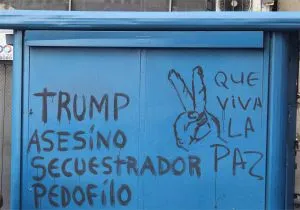 TRUMP
ASESINO
SECUESTRADOR
PEDOFILO
QUE
VIVA
LA
PAZ